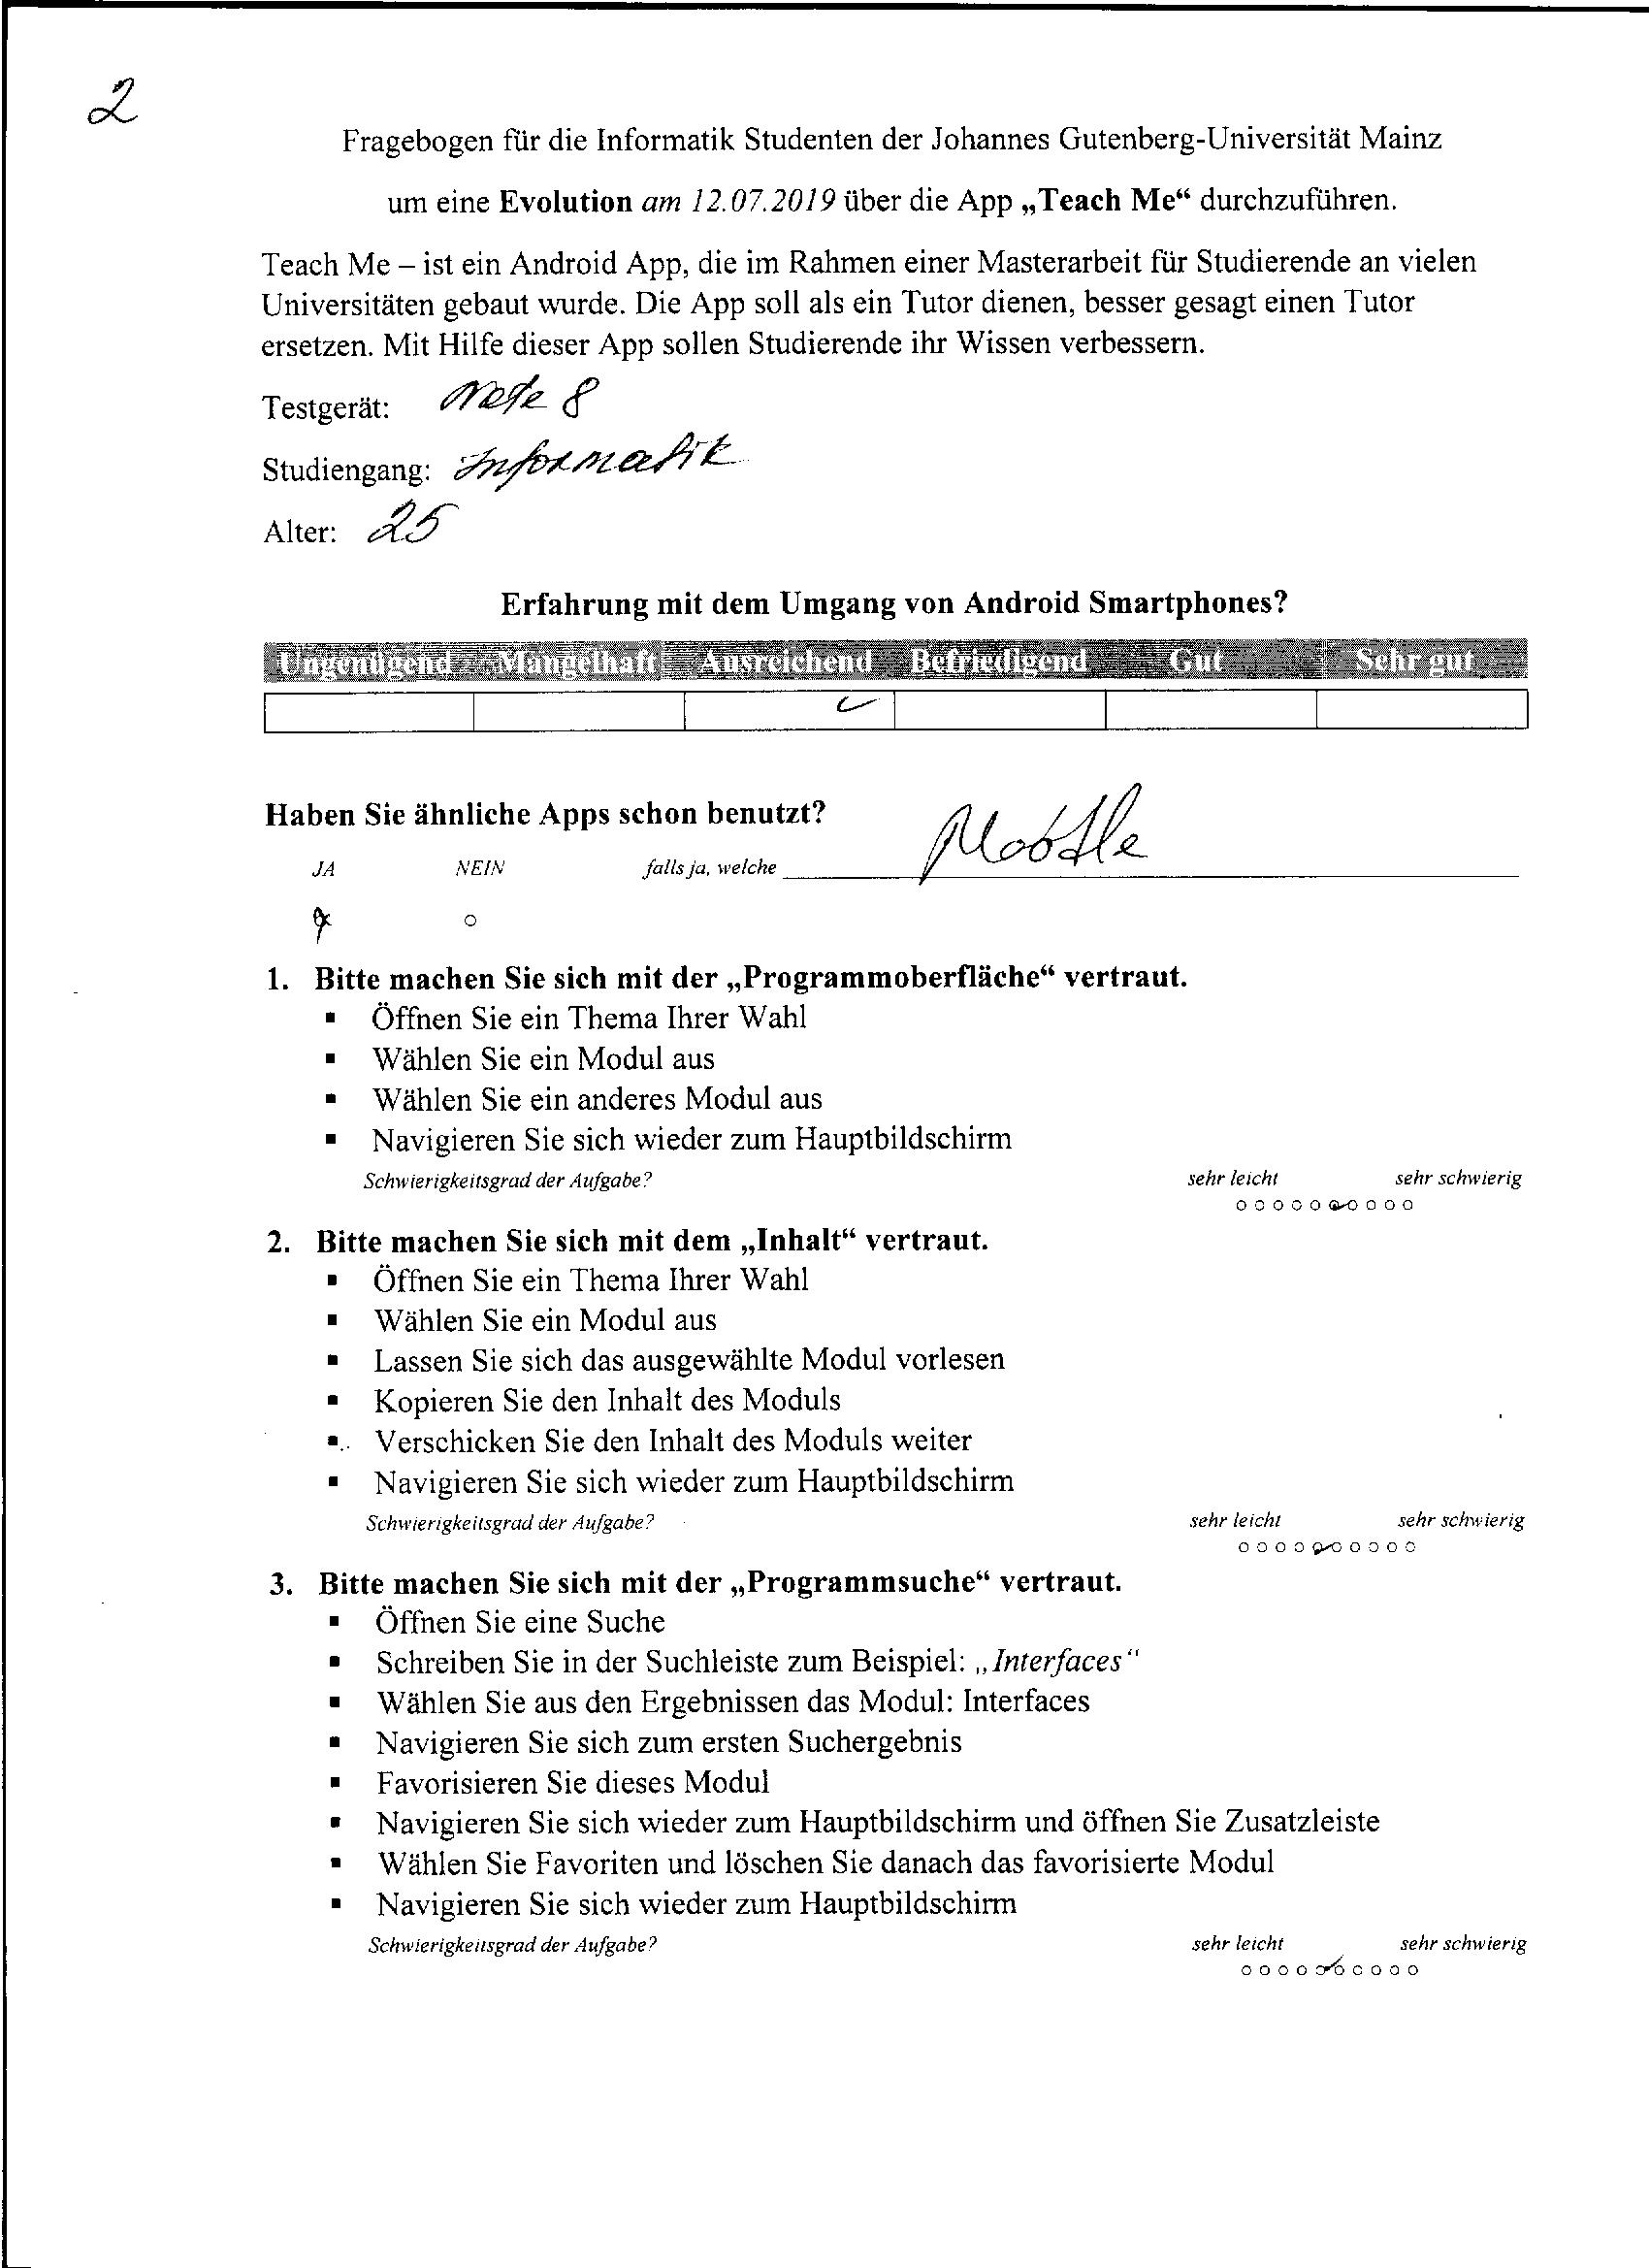 2
Fragebogen für die Informatik Studenten der Johannes Gutenberg-Universität Mainz
um eine Evolution am 12.07.2019 über die App „Teach Me“ durchzuführen.
Teach Me – ist ein Android App, die im Rahmen einer Masterarbeit für Studierende an vielen
Universitäten gebaut wurde. Die App soll als ein Tutor dienen, besser gesagt einen Tutor
ersetzen. Mit Hilfe dieser App sollen Studierende ihr Wissen verbessern.
Testgerät: Note 8
Studiengang: Informatik
Alter: 25
Erfahrung mit dem Umgang von Android Smartphones?
Ungenügend Mangelhaft Ausreichend Befriedigend Gut Sehr gut
Haben Sie ähnliche Apps schon benutzt?
JA NEIN falls ja, welche Moodle
1. Bitte machen Sie sich mit der „Programmoberfläche“ vertraut.
▪ Öffnen Sie ein Thema Ihrer Wahl
▪ Wählen Sie ein Modul aus
▪ Wählen Sie ein anderes Modul aus
▪ Navigieren Sie sich wieder zum Hauptbildschirm
Schwierigkeitsgrad der Aufgabe? sehr leicht sehr schwierig
2. Bitte machen Sie sich mit dem „Inhalt“ vertraut.
▪ Öffnen Sie ein Thema Ihrer Wahl
▪ Wählen Sie ein Modul aus
▪ Lassen Sie sich das ausgewählte Modul vorlesen
▪ Kopieren Sie den Inhalt des Moduls
▪ Verschicken Sie den Inhalt des Moduls weiter
▪ Navigieren Sie sich wieder zum Hauptbildschirm
Schwierigkeitsgrad der Aufgabe? sehr leicht sehr schwierig
3. Bitte machen Sie sich mit der „Programmsuche“ vertraut.
▪ Öffnen Sie eine Suche
▪ Schreiben Sie in der Suchleiste zum Beispiel: „Interfaces“
▪ Wählen Sie aus den Ergebnissen das Modul: Interfaces
▪ Navigieren Sie sich zum ersten Suchergebnis
▪ Favorisieren Sie dieses Modul
▪ Navigieren Sie sich wieder zum Hauptbildschirm und öffnen Sie Zusatzleiste
▪ Wählen Sie Favoriten und löschen Sie danach das favorisierte Modul
▪ Navigieren Sie sich wieder zum Hauptbildschirm
Schwierigkeitsgrad der Aufgabe? sehr leicht sehr schwierig